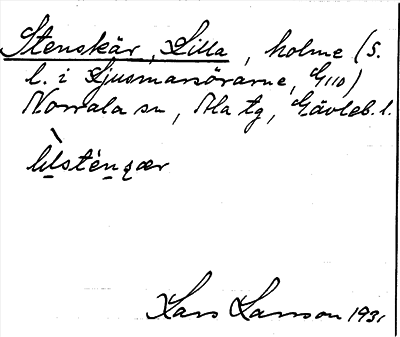 Stenskär, Lilla, holme (s.
l. i Ljusmarsörarne, G110)
Norrala sn, Ala tg, Gävleb. l.
Lars Larsson 1931